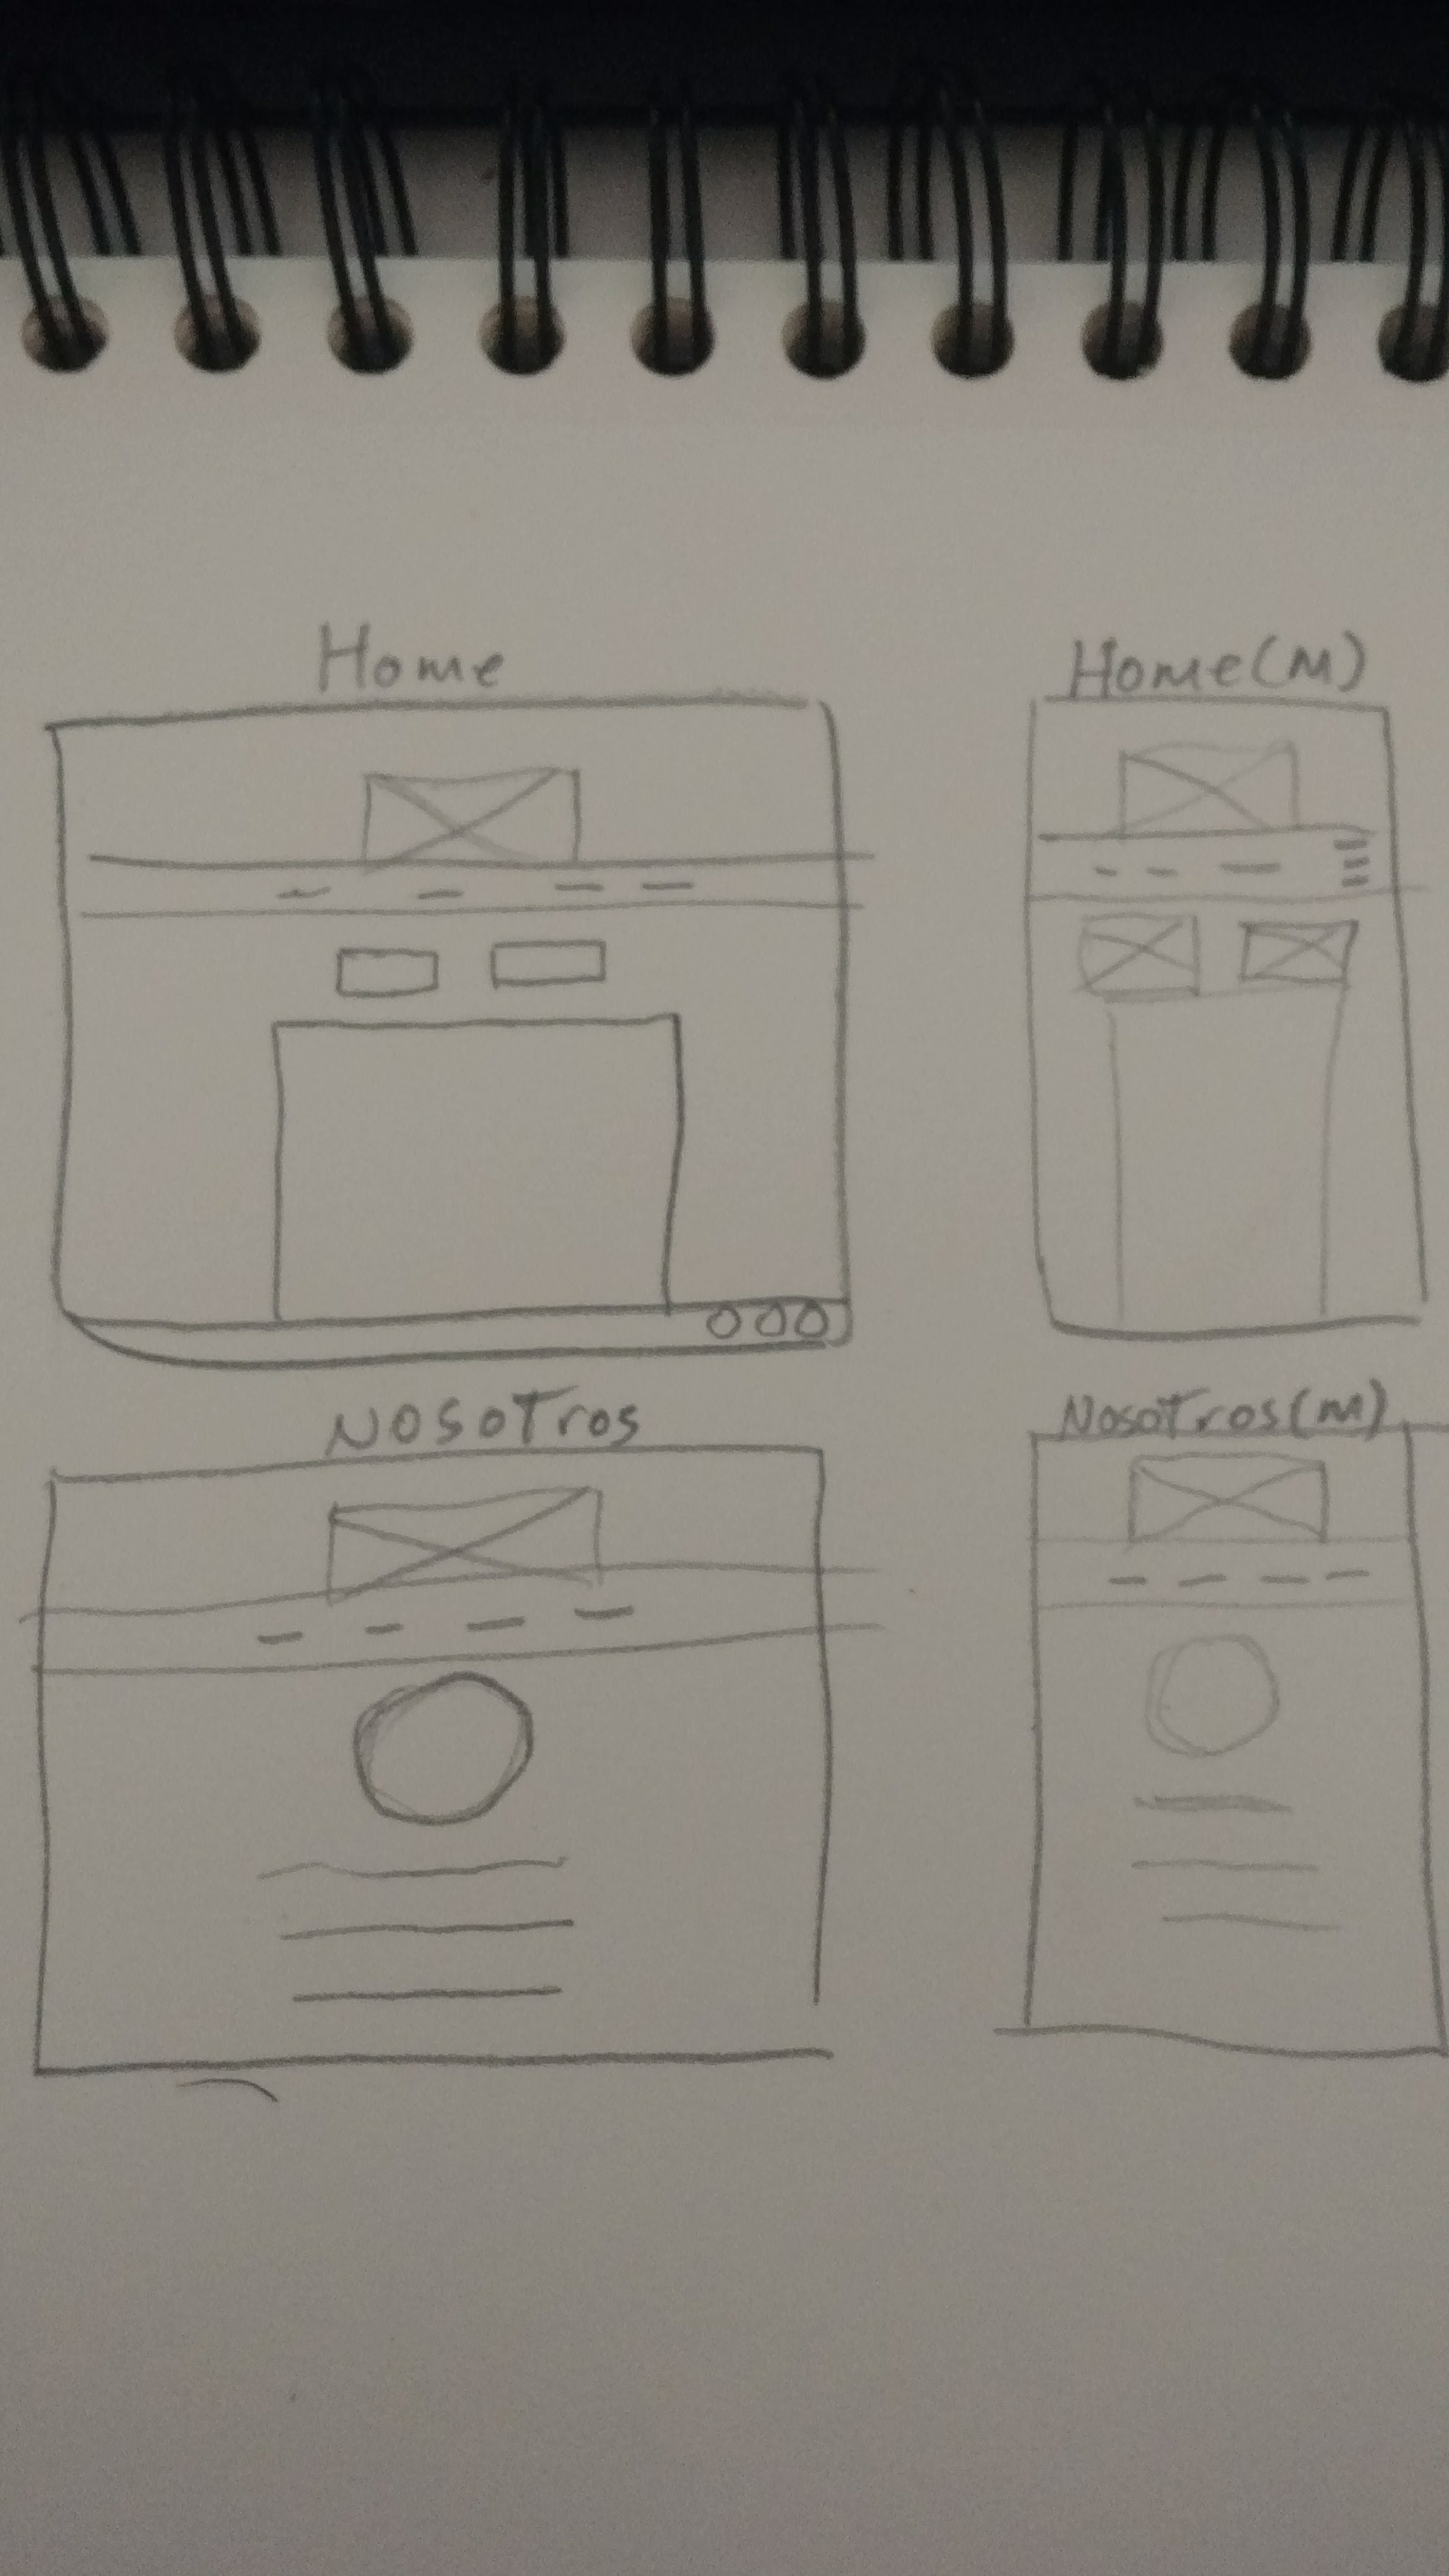 Home
Home(M)
NosoTros
NosoTros(m)